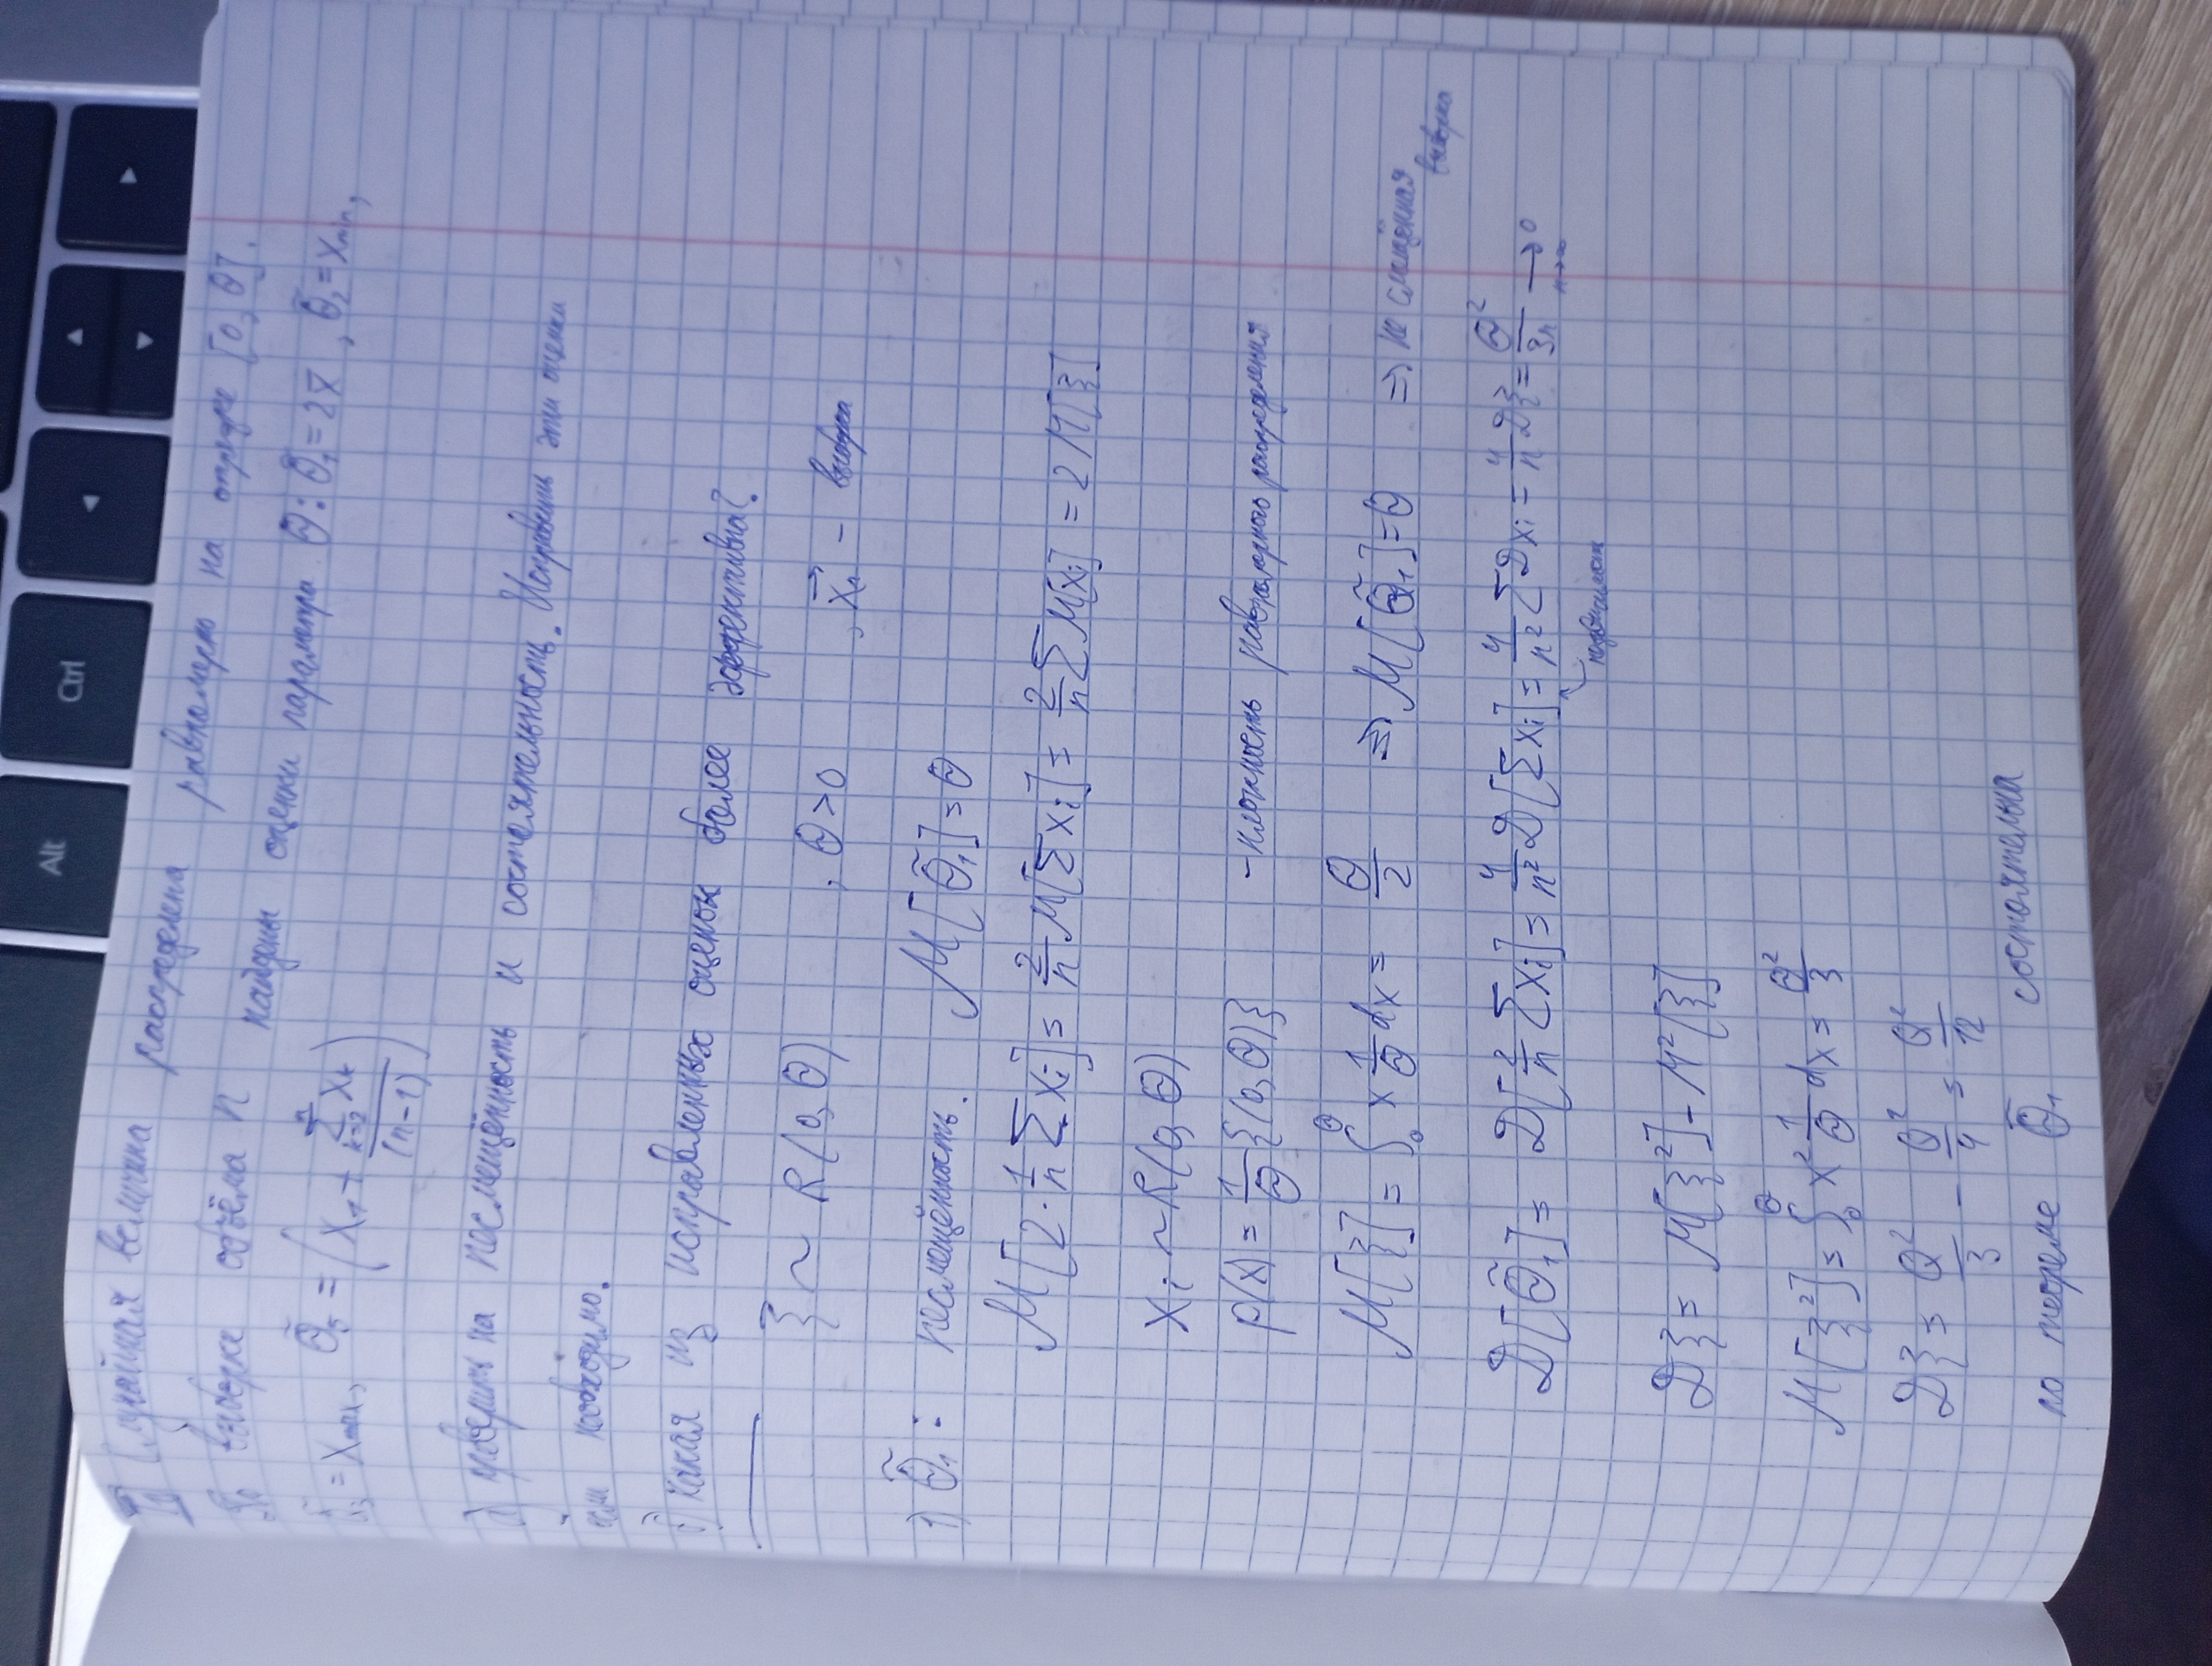 Случайная величина распределена равномерно на отрезке [0, θ].
По выборке объёма n найдены оценки параметра θ: θ̃₁ = 2x̄, θ̃₂ = x min,
θ̃₃ = x max, θ̃₅ = (x₁ + \frac{\sum_{k=2}^{n} x_k}{(n-1)})
а) проверить на несмещённость и состоятельность. Исправить эти оценки
если необходимо.
б) Какая из исправленных оценок более эффективна?
ξ ~ R(0, θ) , θ > 0 , x⃗ₙ - выборка
1) θ̃₁: Несмещённость. M[θ̃₁] = θ
M[2 · \frac{1}{n} Σ xᵢ] = \frac{2}{n} M[Σ xᵢ] = \frac{2}{n} Σ M[xᵢ] = 2 M[ξ]
Xᵢ ~ R(0, θ)
p(x) = \frac{1}{θ} {(0, θ)} - плотность равномерного распределения
M[ξ] = ∫₀^θ x \frac{1}{θ} dx = \frac{θ}{2} ⇒ M[θ̃₁] = θ ⇒ несмещённая
D[θ̃₁] = D[\frac{2}{n} Σ xᵢ] = \frac{4}{n²} D[Σ xᵢ] = \frac{4}{n²} Σ D xᵢ = \frac{4}{n} Dξ = \frac{θ²}{3n} → 0
n→∞
Dξ = M[ξ²] - M²[ξ]
M[ξ²] = ∫₀^θ x² \frac{1}{θ} dx = \frac{θ²}{3}
Dξ = \frac{θ²}{3} - \frac{θ²}{4} = \frac{θ²}{12}
по теореме θ̃₁ состоятельна
Alt
Ctrl